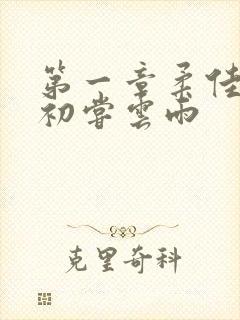 第一章柔佳
初嘗雲雨
克里奇科